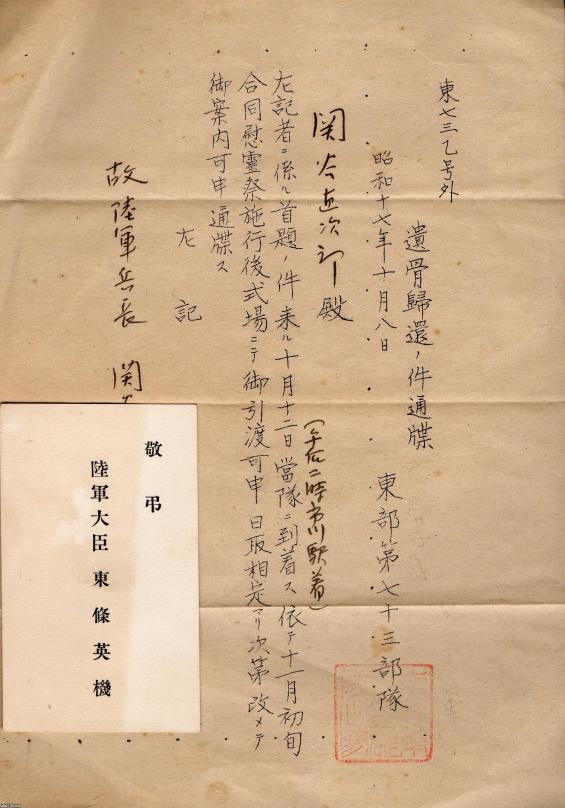 東七三乙号外
遺骨歸還ノ件通牒
昭和十七年十月八日
東部第七十三部隊
関谷直次郎殿
(午后二時市川駅着)
左記者ニ係ル首題ノ件来ル十月十二日當隊ニ到着ス依テ十一月初旬
合同慰霊祭施行後式場ニテ御引渡可申日取相定マリ次第改メテ
御案内可申通牒ス
左記
故陸軍兵長 関
敬弔
陸軍大臣 東條英機